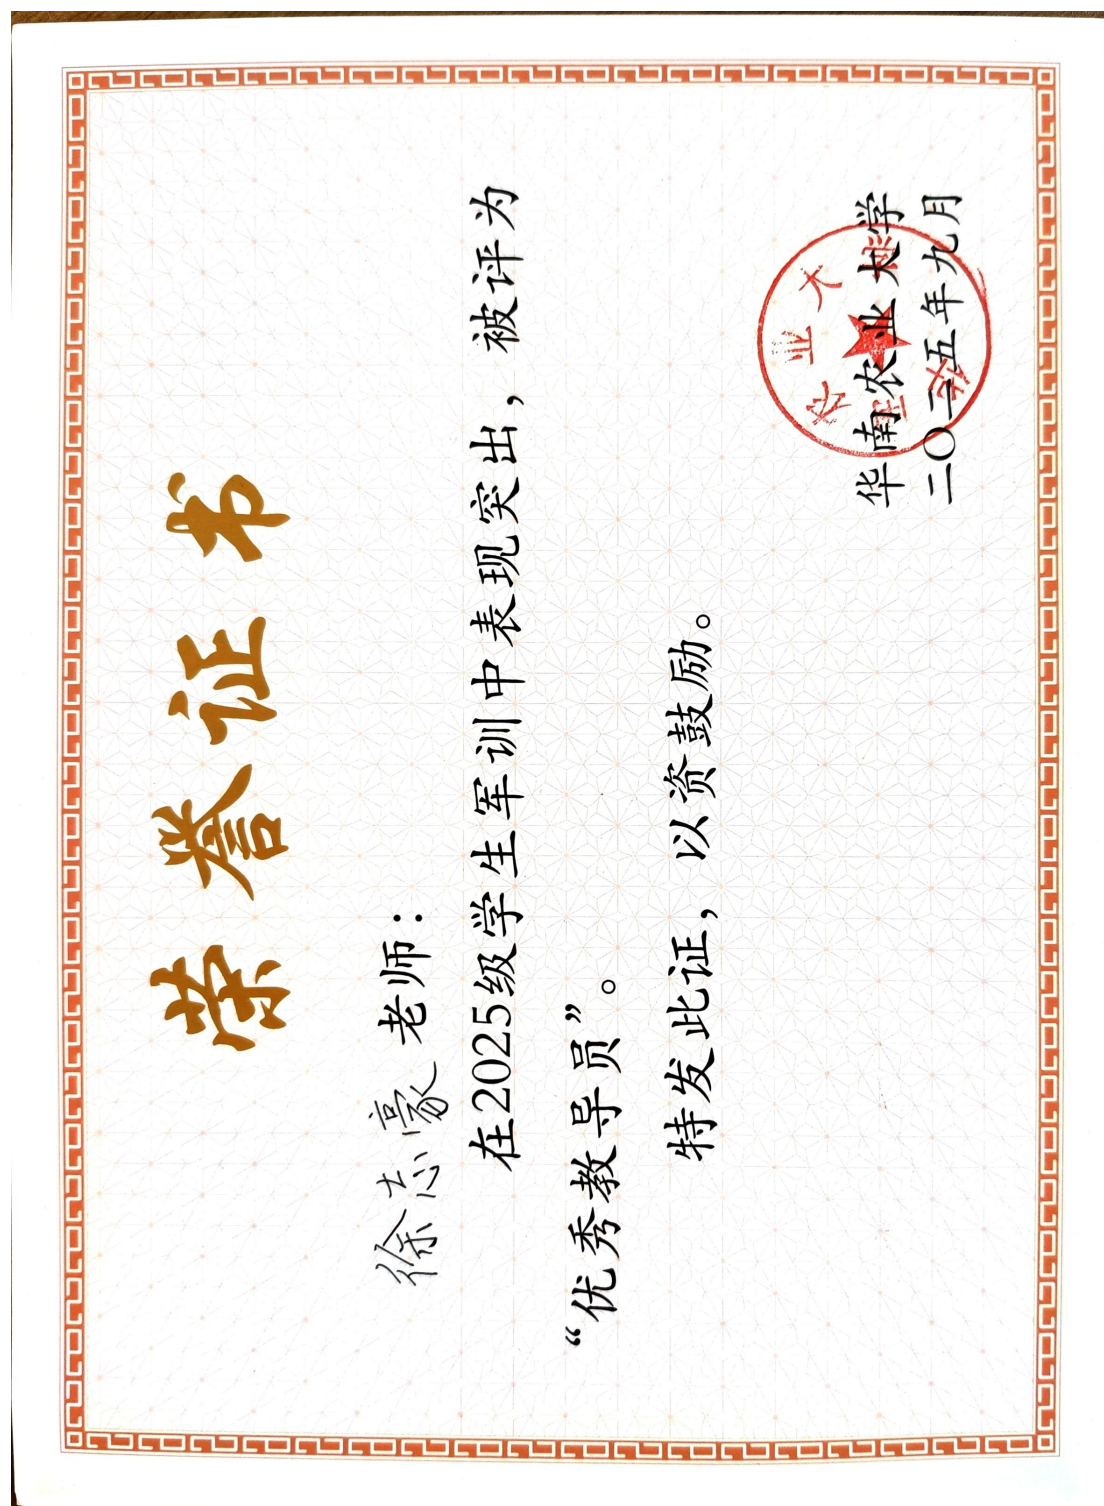 荣誉证书
徐志豪老师：
在2025级学生军训中表现突出，被评为
“优秀教导员”。
特发此证，以资鼓励。
华南农业大学
二〇二五年九月